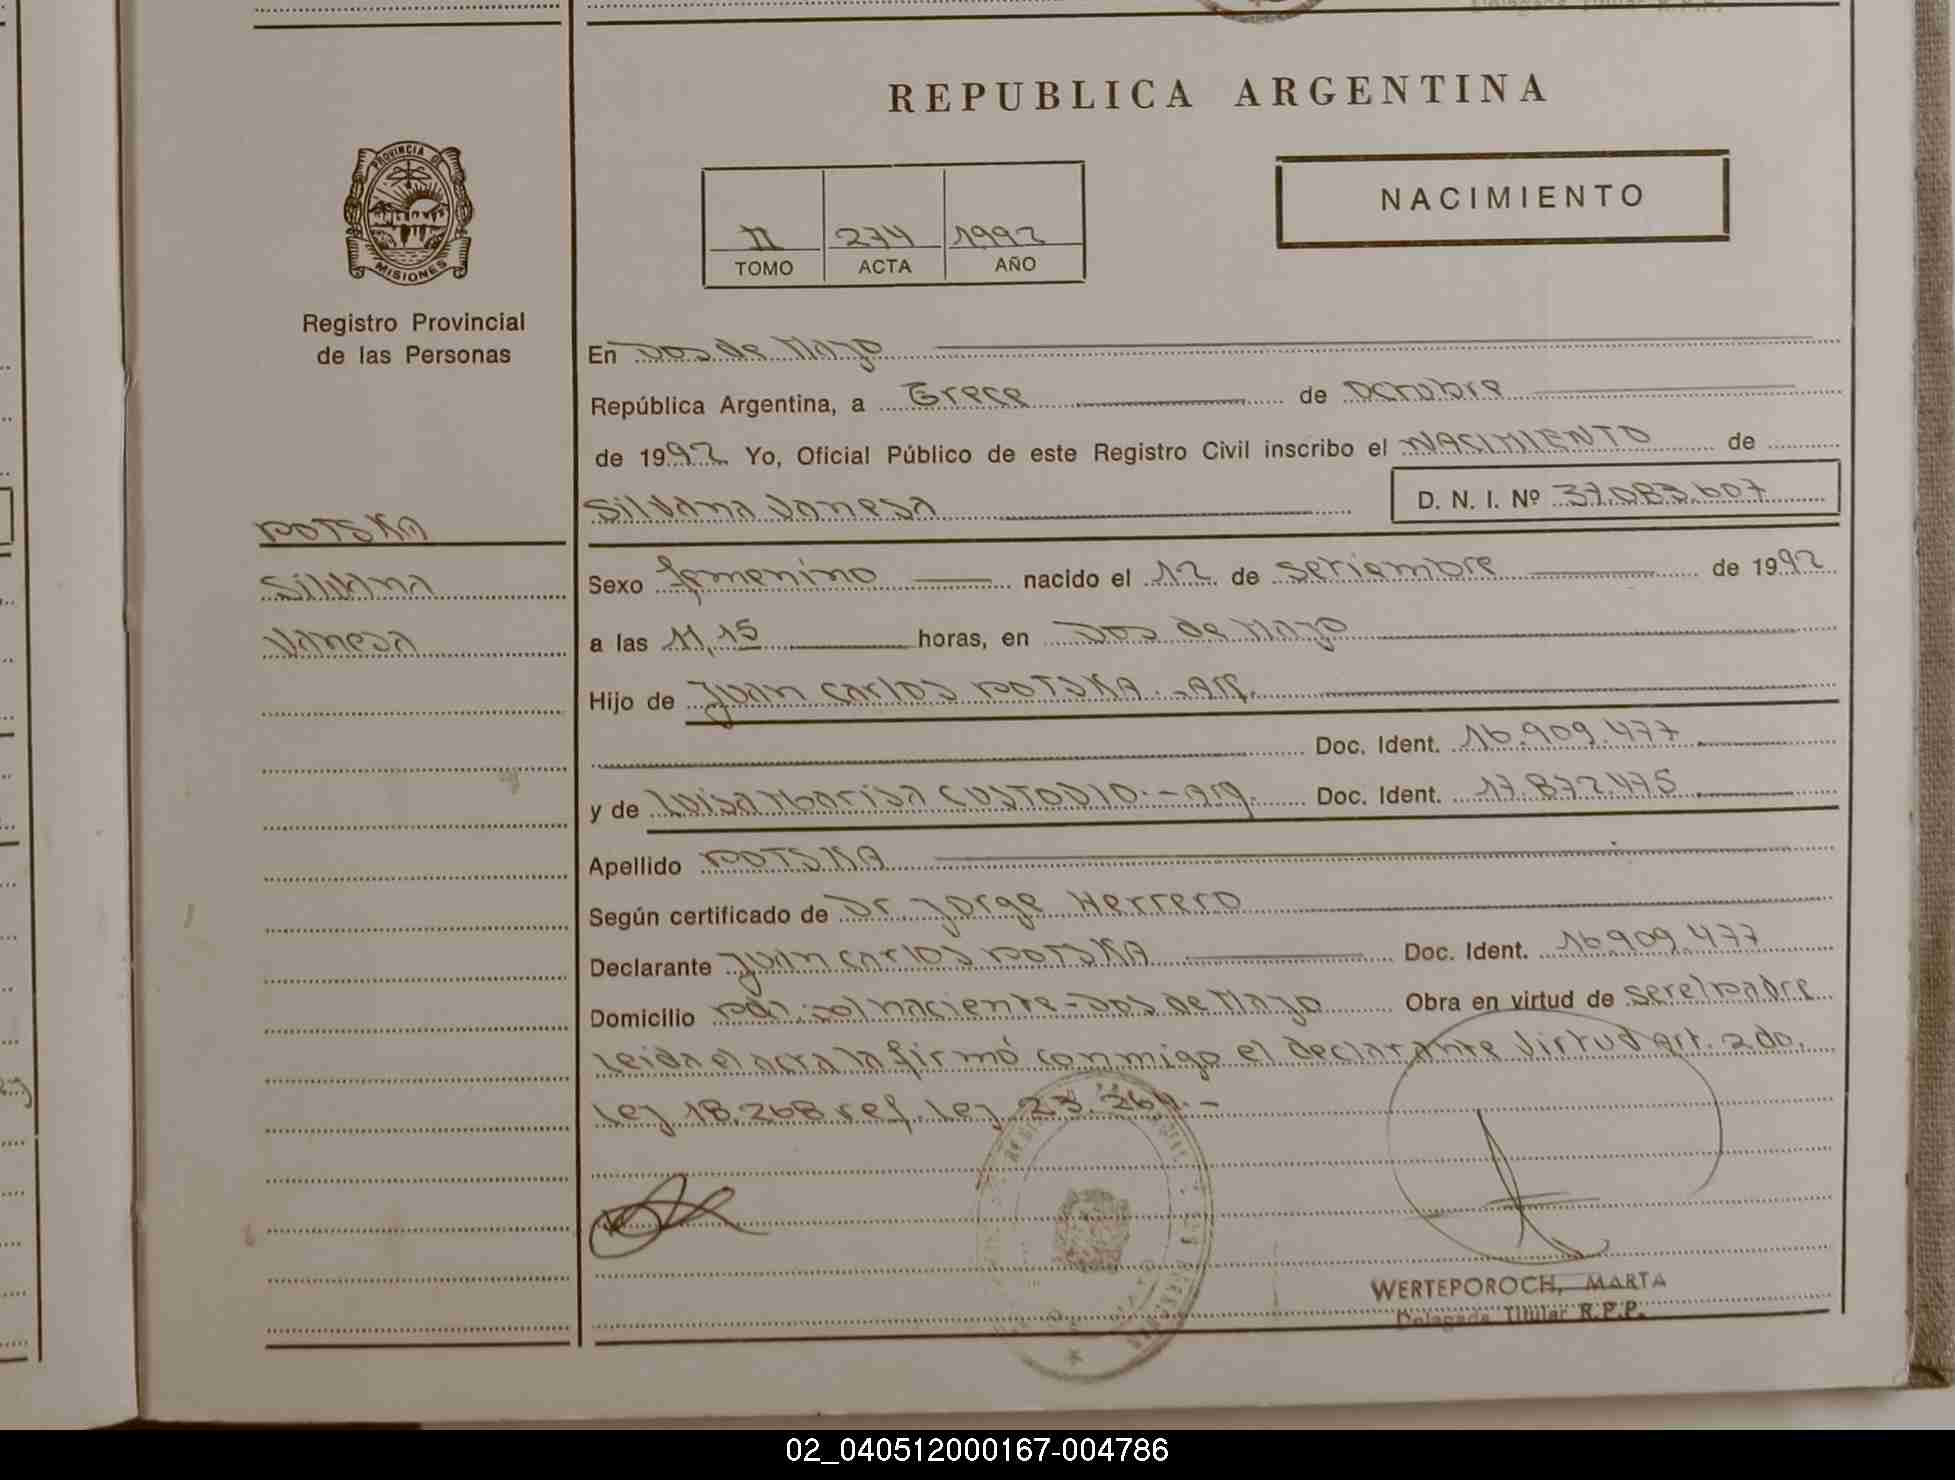 REPUBLICA ARGENTINA
PROVINCIA DE
MISIONES
NACIMIENTO
II 274 1992
TOMO ACTA AÑO
Registro Provincial
de las Personas
En Dos de Mayo
República Argentina, a Trece de Octubre
de 1992 Yo, Oficial Público de este Registro Civil inscribo el NACIMIENTO de
Silvana Vanesa D. N. I. Nº 37.083.607
POTSKA
Silvana
Vanesa
Sexo femenino nacido el 12 de Setiembre de 1992
a las 11,15 horas, en Dos de Mayo
Hijo de Juan Carlos POTSKA.-Arg.
Doc. Ident. 16.909.477
y de Luisa Marisa CUSTODIO.-Arg. Doc. Ident. 17.872.475
Apellido POTSKA
Según certificado de Dr. Jorge Herrero
Declarante Juan Carlos POTSKA Doc. Ident. 16.909.477
Domicilio Pdl. Sol Naciente-Dos de Mayo Obra en virtud de ser el padre
Leida el acta la firmó conmigo el declarante Virtud Art. 2do.
Ley 18.268 ref. Ley 23.264.-
WERTEPOROCH, MARTA
Delegada Titular R.P.P.
02_040512000167-004786